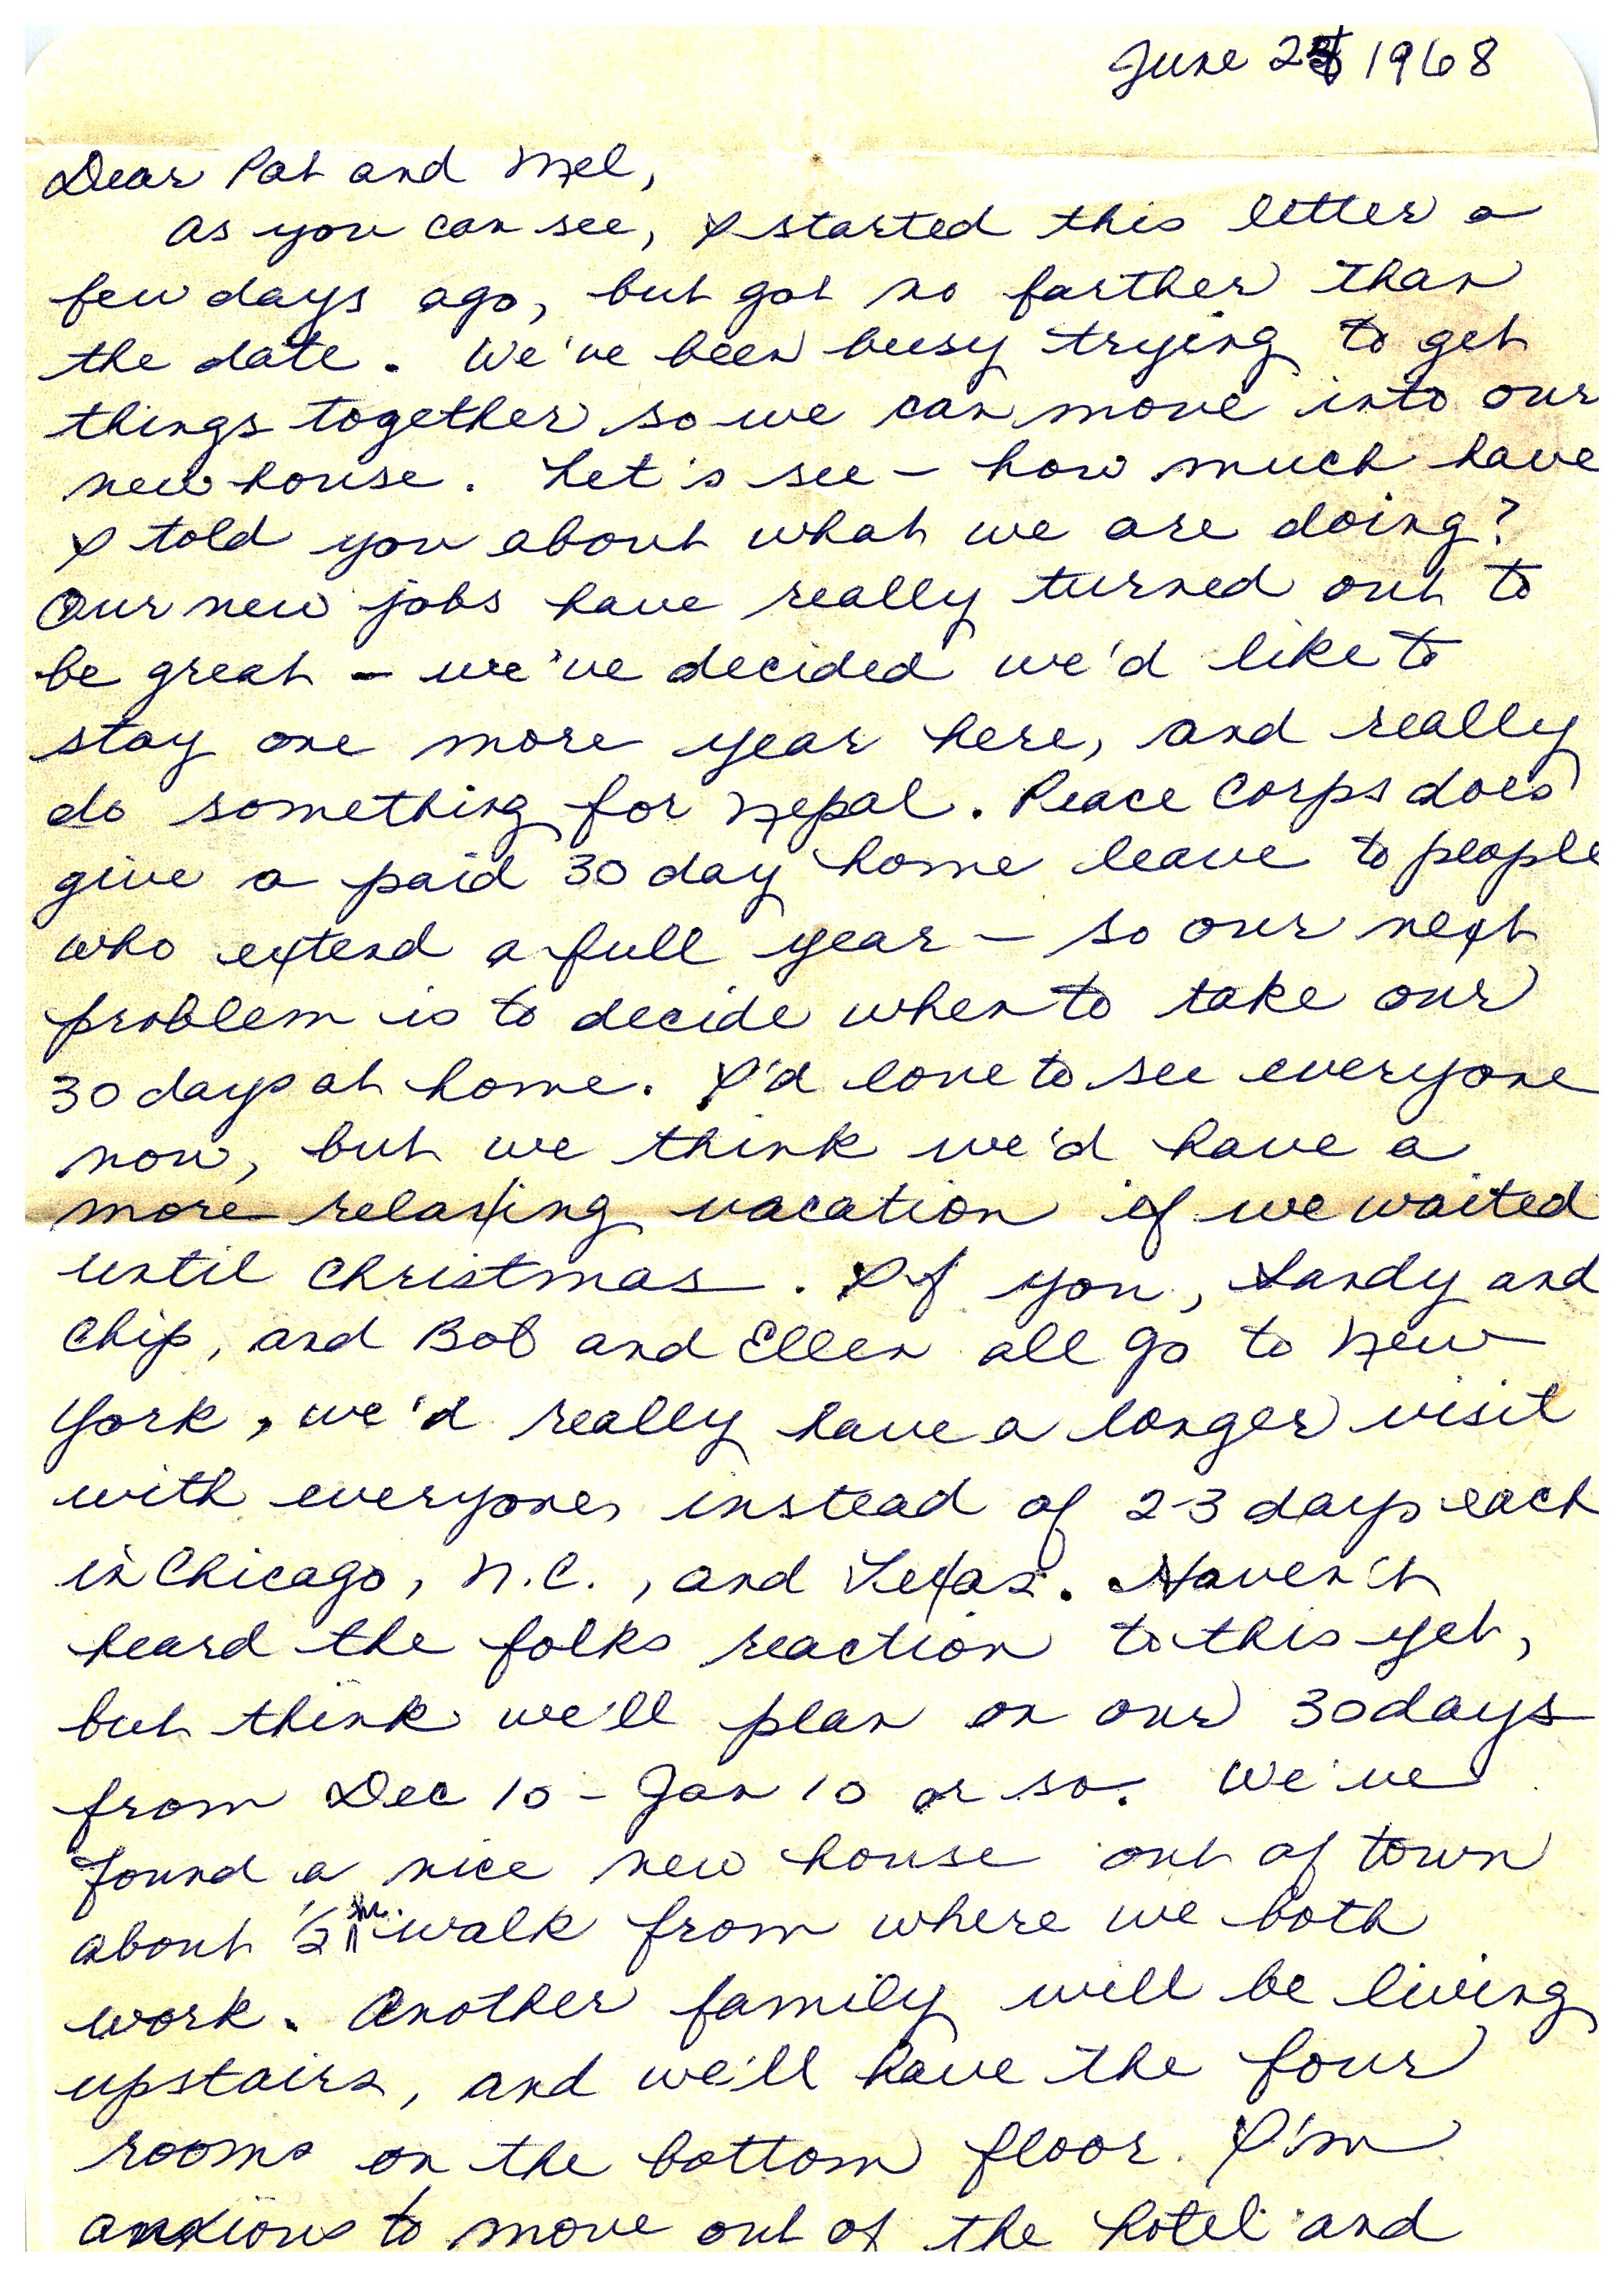 June 2 1968
Dear Pat and Mel,
As you can see, I started this letter a
few days ago, but got no farther than
the date. We've been busy trying to get
things together so we can move into our
new house. Let's see – how much have
I told you about what we are doing?
Our new jobs have really turned out to
be great – we've decided we'd like to
stay one more year here, and really
do something for Nepal. Peace Corps does
give a paid 30 day home leave to people
who extend a full year – so our next
problem is to decide when to take our
30 days at home. I'd love to see everyone
now, but we think we'd have a
more relaxing vacation if we waited
until Christmas. If you, Sandy and
Chip, and Bob and Ellen all go to New
York, we'd really have a longer visit
with everyone, instead of 2-3 days each
in Chicago, N.C., and Texas. Haven't
heard the folks reaction to this yet,
but think we'll plan on our 30 days
from Dec 10 - Jan 10 or so. We've
found a nice new house out of town
about 1/2 hr. walk from where we both
work. Another family will be living
upstairs, and we'll have the four
rooms on the bottom floor. I'm
anxious to move out of the hotel and